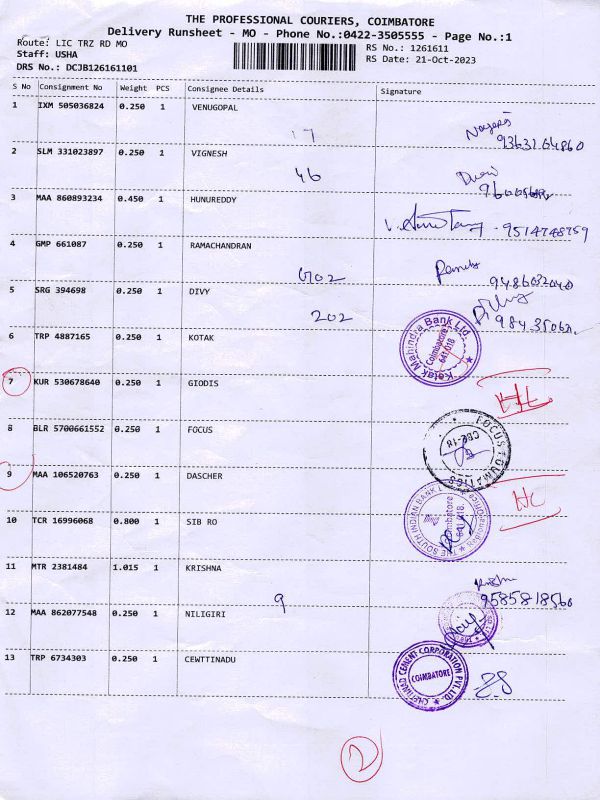 THE PROFESSIONAL COURIERS, COIMBATORE
Delivery Runsheet - MO - Phone No.:0422-3505555 - Page No.:1
Route: LIC TRZ RD MO
RS No.: 1261611
Staff: USHA
RS Date: 21-Oct-2023
DRS No.: DCJB126161101
S No Consignment No Weight PCS Consignee Details Signature
1 IXM 505036824 0.250 1 VENUGOPAL
17
2 SLM 331023897 0.250 1 VIGNESH
46
3 MAA 860893234 0.450 1 HUNUREDDY
9514748759
4 GMP 661087 0.250 1 RAMACHANDRAN
5 SRG 394698 0.250 1 DIVY
202
6 TRP 4887165 0.250 1 KOTAK
Kotak Mahindra Bank Ltd
Coimbatore
641 018
7 KUR 530678640 0.250 1 GIODIS
8 BLR 5700661552 0.250 1 FOCUS
CBE-18
9 MAA 106520763 0.250 1 DASCHER
10 TCR 16996068 0.800 1 SIB RO
THE SOUTH INDIAN BANK
Coimbatore
641 018
11 MTR 2381484 1.015 1 KRISHNA
9585818560
9
12 MAA 862077548 0.250 1 NILIGIRI
13 TRP 6734303 0.250 1 CEWTTINADU
CHETTINAD CEMENT CORPORATION PVT.LTD.
COIMBATORE
2